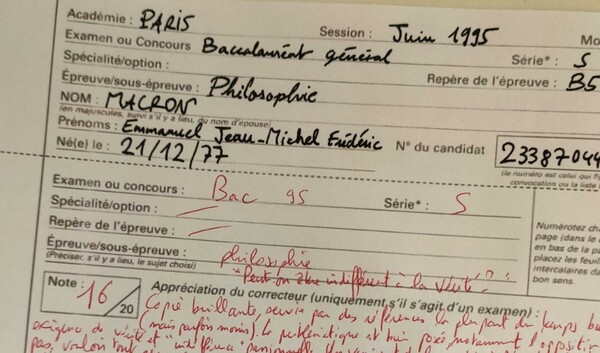 Académie : PARIS Session : Juin 1995 Mo
Examen ou Concours Baccalauréat général Série* : S
Spécialité/option : Repère de l'épreuve : B5
Épreuve/sous-épreuve : Philosophie
NOM : MACRON
(en majuscules, suivi s'il y a lieu, du nom d'épouse)
Prénoms : Emmanuel Jean-Michel Frédéric N° du candidat 23387044
Né(e) le : 21/12/77 (le numéro est celui qui fi
convocation ou la liste
Examen ou concours : Bac 95 Série* : S
Spécialité/option :
Repère de l'épreuve :
Épreuve/sous-épreuve : philosophie
(Préciser, s'il y a lieu, le sujet choisi) "Peut on être indifférent à la vérité"?
Numérotez cha
page (dans le
en bas de la pa
placez les feuill
intercalaires da
bon sens.
Note : 16 /20 Appréciation du correcteur (uniquement s'il s'agit d'un examen) :
Copie brillante, servie par des références la plupart du temps
exigence de vérité (mais parfois moins). la problématique est bien posée, notamment l'opposition
pas, voulant tout